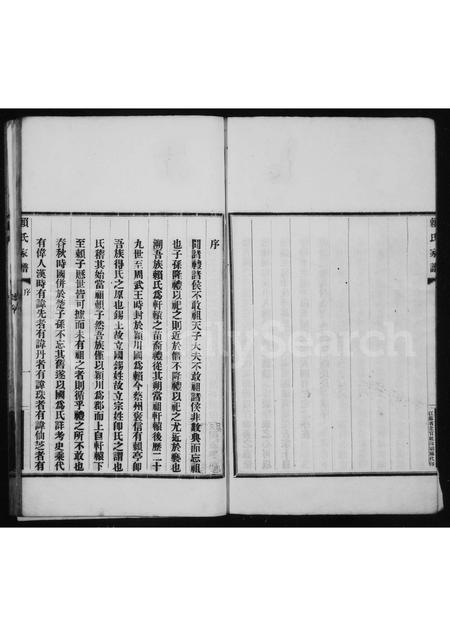 賴氏家譜
序
聞諸禮諸侯不敢祖天子大夫不敢祖諸侯非敢典而忘祖
也子孫隆禮以祀之則近於僭不隆禮以祀之尤近於褻也
溯吾族賴氏爲軒轅之苗裔禮從其朔當祖軒轅後歷二十
九世至周武王時封於潁川國爲賴今蔡州褒信有賴亭卽
吾族得氏之原也錫土故立國錫姓故立宗姓卽氏之謂也
氏稽其始當祖賴子然吾族僅以潁川爲郡而上自軒轅下
至賴子歷世皆可據而未有祖之者則循乎禮之所不敢也
春秋時國併於楚子孫不忘其舊遂以國爲氏詳考史乘代
有偉人漢時有諱先者有諱丹者有諱珠者有諱仙芝者有
賴氏家譜
序